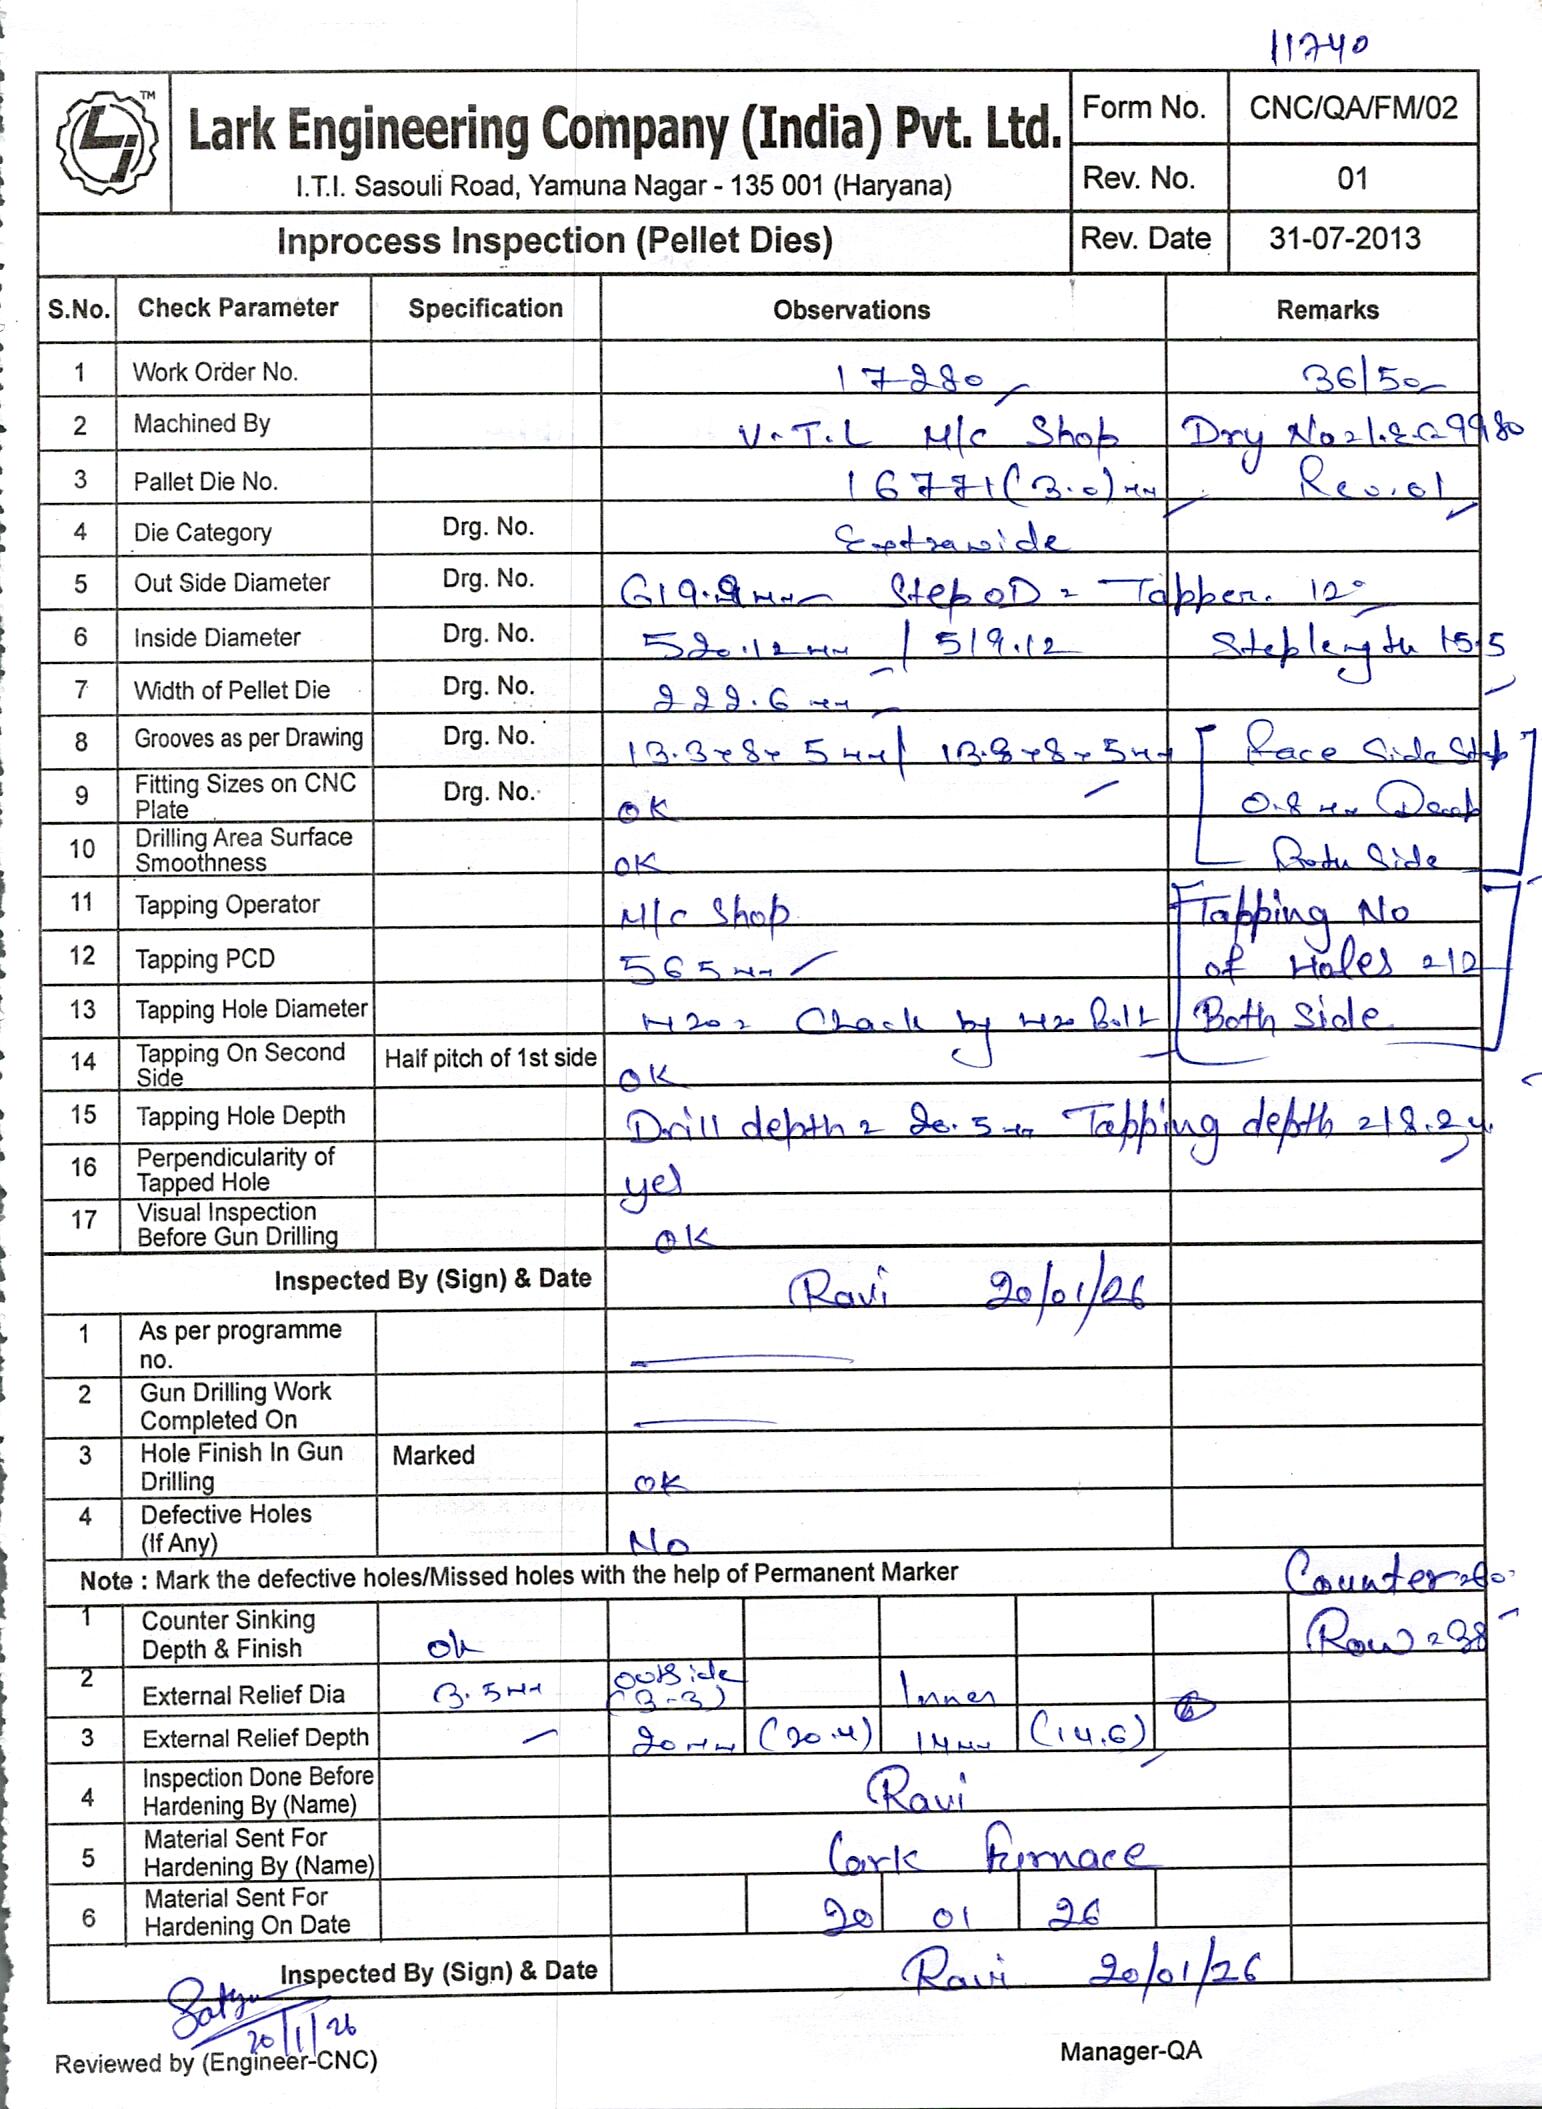 11740
TM
Lark Engineering Company (India) Pvt. Ltd.
I.T.I. Sasouli Road, Yamuna Nagar - 135 001 (Haryana)
Form No. CNC/QA/FM/02
Rev. No. 01
Inprocess Inspection (Pellet Dies) Rev. Date 31-07-2013
S.No. Check Parameter Specification Observations Remarks
1 Work Order No. 17280 36/50
2 Machined By V.T.L M/c Shop Drg No
3 Pallet Die No. 16771(3.0)mm Rev.01
4 Die Category Drg. No. Extrawide
5 Out Side Diameter Drg. No. 619.9mm Step OD = Tapper. 12°
6 Inside Diameter Drg. No. 520.12mm / 519.12 Step length 15.5
7 Width of Pellet Die Drg. No. 222.6mm
8 Grooves as per Drawing Drg. No. 13.3x8x5mm/ 13.3x8x5mm Face Side Step
9 Fitting Sizes on CNC Plate Drg. No. OK 0.8mm Deep
10 Drilling Area Surface Smoothness OK Both Side
11 Tapping Operator M/c Shop Tapping No
12 Tapping PCD 565mm of Holes = 12
13 Tapping Hole Diameter M20 = Chack by M20 Bolt Both Side
14 Tapping On Second Side Half pitch of 1st side OK
15 Tapping Hole Depth Drill depth = 20.5mm Tapping depth = 18.2
16 Perpendicularity of Tapped Hole yes
17 Visual Inspection Before Gun Drilling OK
Inspected By (Sign) & Date Ravi 20/01/26
1 As per programme no.
2 Gun Drilling Work Completed On
3 Hole Finish In Gun Drilling Marked OK
4 Defective Holes (If Any) No
Note : Mark the defective holes/Missed holes with the help of Permanent Marker Counter
1 Counter Sinking Depth & Finish ok Row = 38
2 External Relief Dia 3.5mm outside (3-3) Inner
3 External Relief Depth 20mm (20.4) 14mm (14.6)
4 Inspection Done Before Hardening By (Name) Ravi
5 Material Sent For Hardening By (Name) Lark Furnace
6 Material Sent For Hardening On Date 20 01 26
Inspected By (Sign) & Date Ravi 20/01/26
Satyu
20/1/26
Reviewed by (Engineer-CNC) Manager-QA